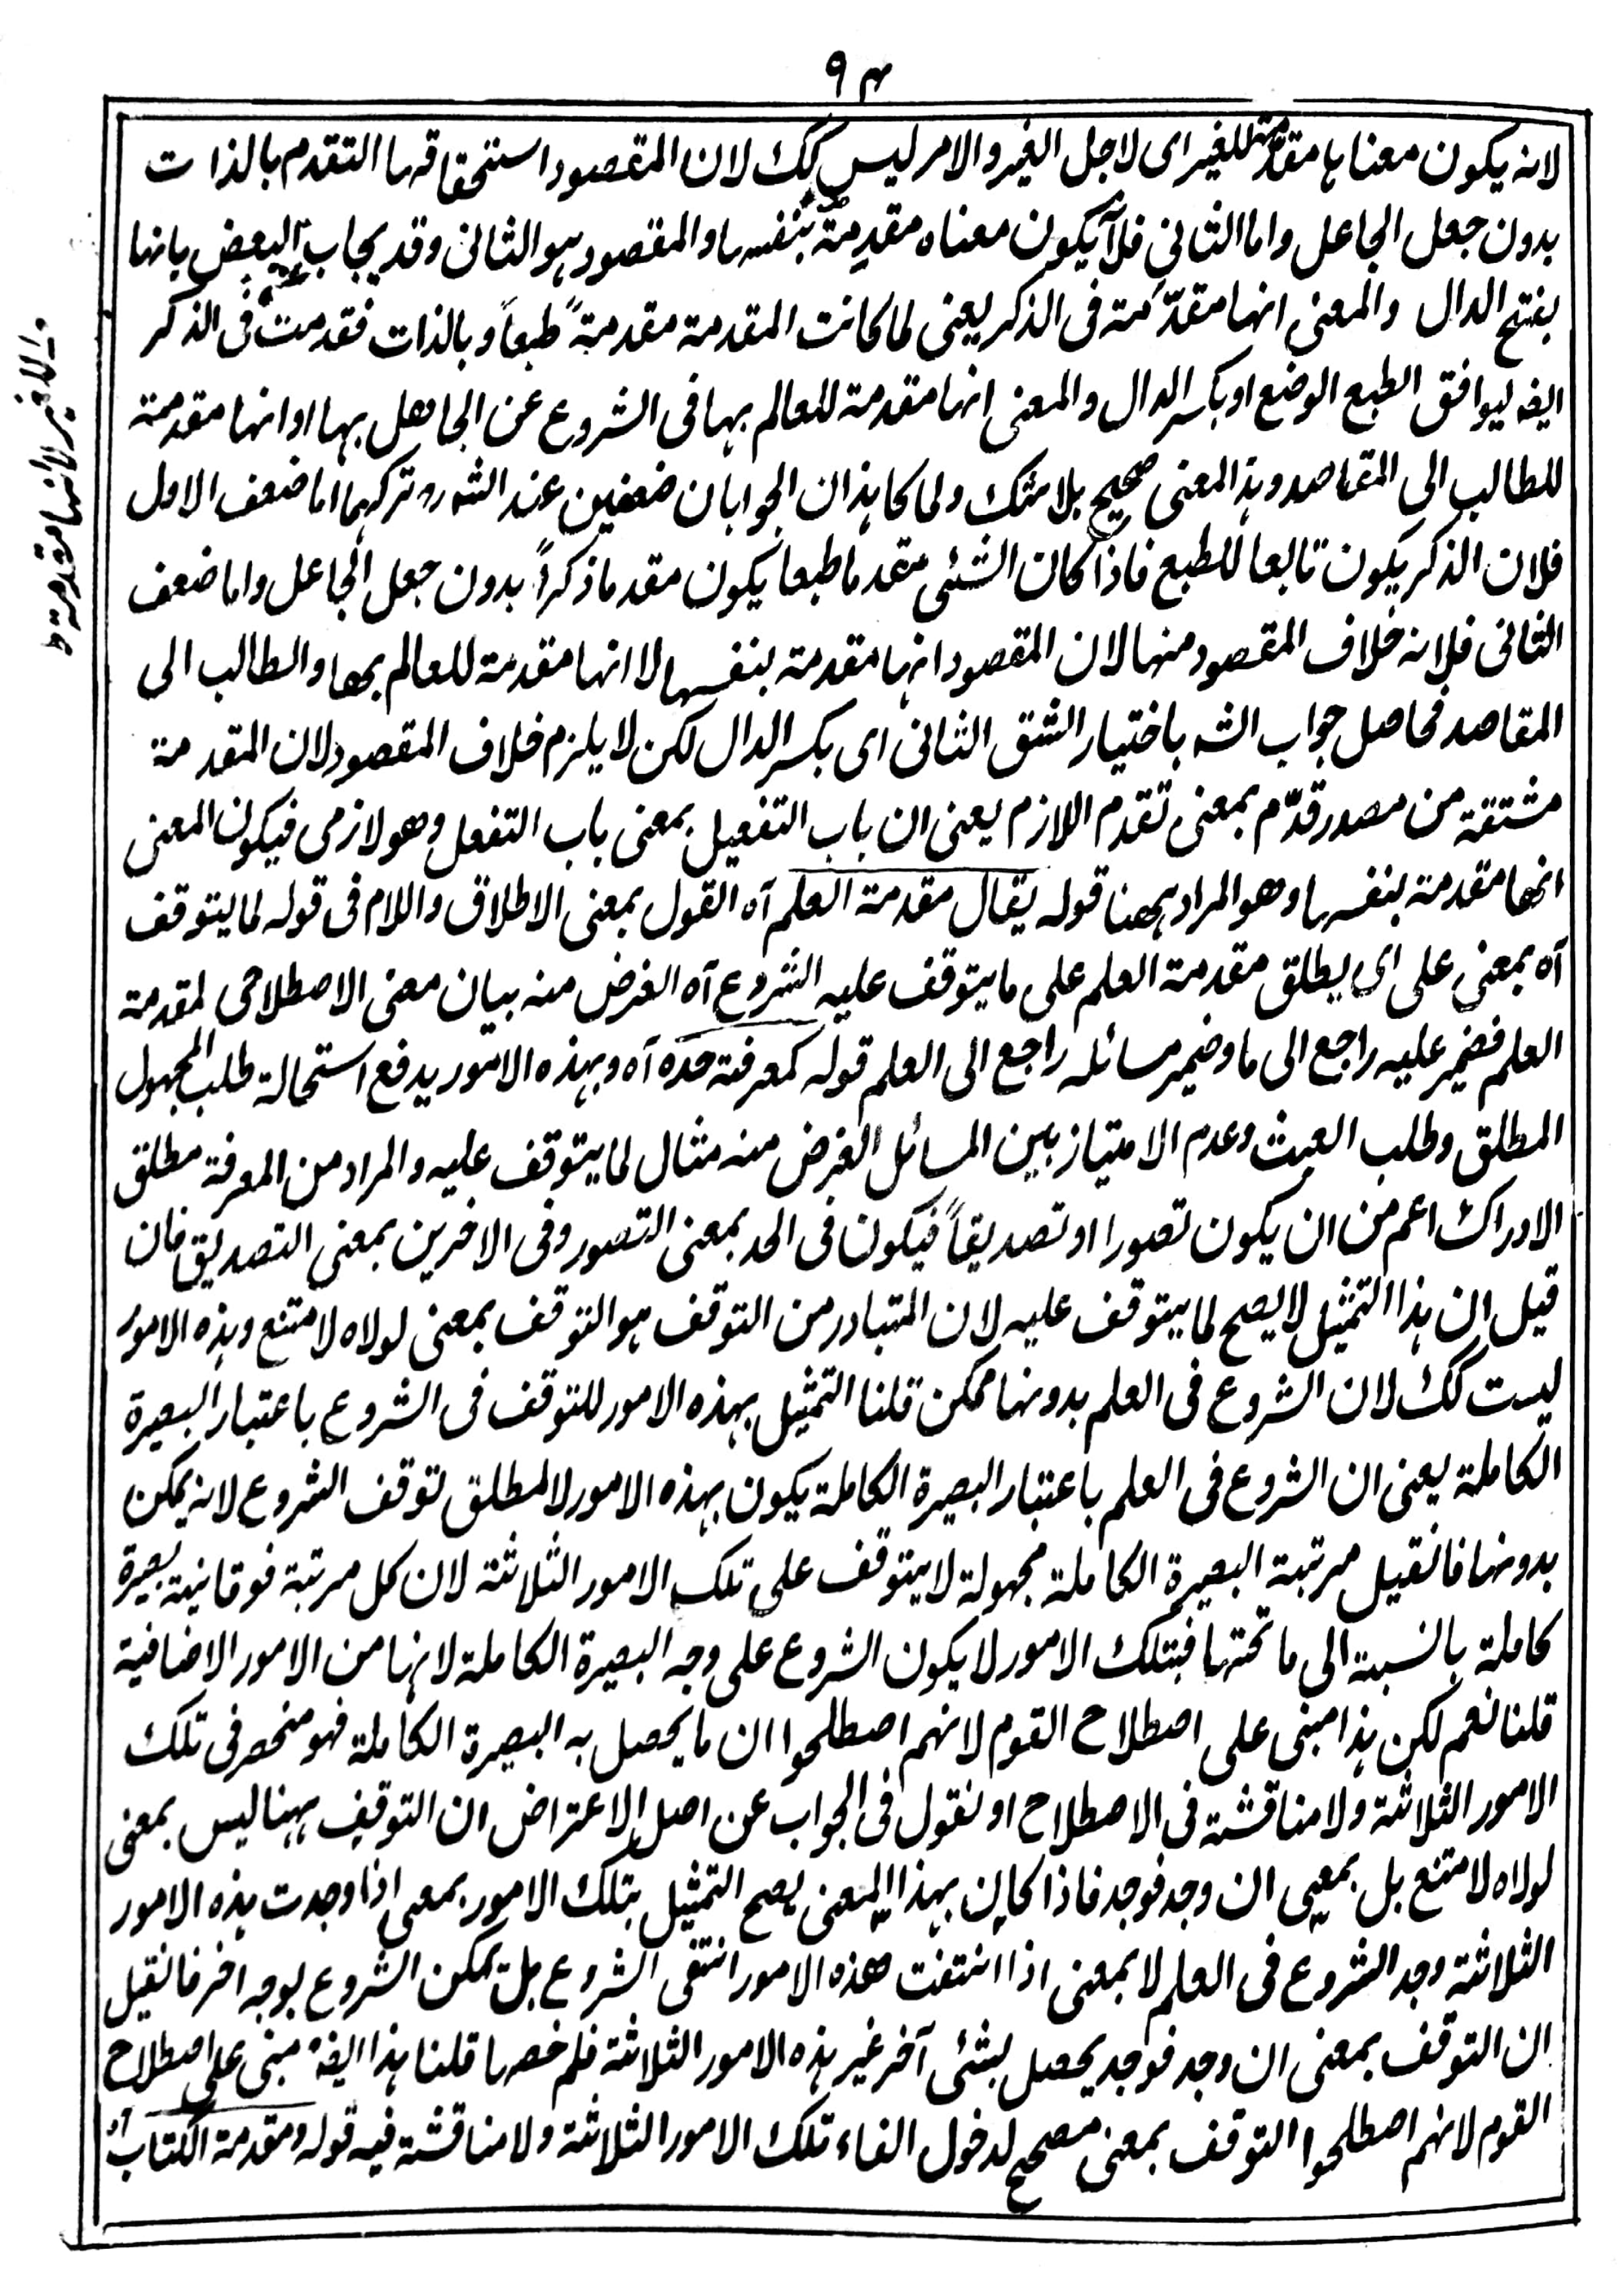 ٩٤
لانه يكون معناها مقدمة للغير اى لاجل الغير والامر ليس كك لان المقصود استحقاقها التقدم بالذات
بدون جعل الجاعل واما الثانى فلا يكون معناه مقدمة بنفسها والمقصود هو الثانى وقد يجاب البعض بانها
بفتح الدال والمعنى انها مقدّمة فى الذكر يعنى لما كانت المقدمة مقدمةً طبعاً وبالذات فقدمت فى الذكر
ايضه ليوافق الطبع الوضع او بكسر الدال والمعنى انها مقدمة للعالم بها فى الشروع عن الجاهل بها او انها مقدمة
للطالب الى المقاصد وهذا المعنى صحيح بلا شك ولما كا هذان الجوابان ضعفين عند الشه تركهما اما ضعف الاول
فلان الذكر يكون تابعا للطبع فاذا كان الشئى مقدما طبعا يكون مقدما ذكراً بدون جعل الجاعل واما ضعف
الثانى فلانه خلاف المقصود منها لان المقصود انها مقدمة بنفسها لا انها مقدمة للعالم بها والطالب الى
المقاصد فحاصل جواب الشه باختيار الشق الثانى اى بكسر الدال لكن لا يلزم خلاف المقصود لان المقدمة
مشتقة من مصدر قدّم بمعنى تقدم اللازم يعنى ان باب التفعيل بمعنى باب التفعل وهو لازمى فيكون المعنى
انها مقدمة بنفسها وهو المراد ههنا قوله يقال مقدمة العلم آه القول بمعنى الاطلاق واللام فى قوله لما يتوقف
آه بمعنى على اى يطلق مقدمة العلم على ما يتوقف عليه الشروع آه الغرض منه بيان معنى الاصطلاحى لمقدمة
العلم فضمير عليه راجع الى ما وضمير مسائله راجع الى العلم قوله كمعرفة حده آه وبهذه الامور يدفع استحالة طلب المجهول
المطلق وطلب العبث وعدم الامتياز بين المسائل الغرض منه مثال لما يتوقف عليه والمراد من المعرفة مطلق
الادراك اعم من ان يكون تصورا او تصديقاً فيكون فى الحد بمعنى التصور وفى الاخرين بمعنى التصديق فان
قيل ان هذا التمثيل لا يصح لما يتوقف عليه لان المتبادر من التوقف هو التوقف بمعنى لولاه لامتنع وهذه الامور
ليست كك لان الشروع فى العلم بدونها ممكن قلنا التمثيل بهذه الامور للتوقف فى الشروع باعتبار البصيرة
الكاملة يعنى ان الشروع فى العلم باعتبار البصيرة الكاملة يكون بهذه الامور لا لمطلق توقف الشروع لانه يمكن
بدونها فانقيل مرتبة البصيرة الكاملة مجهولة لا يتوقف على تلك الامور الثلاثة لان كل مرتبة فوقانية بصيرة
كاملة بالنسبة الى ما تحتها فبتلك الامور لا يكون الشروع على وجه البصيرة الكاملة لانها من الامور الاضافية
قلنا نعم لكن هذا مبنى على اصطلاح القوم لانهم اصطلحوا ان ما يحصل به البصيرة الكاملة فهو منحصر فى تلك
الامور الثلاثة ولا مناقشة فى الاصطلاح او نقول فى الجواب عن اصل الاعتراض ان التوقيف ههنا ليس بمعنى
لولاه لامتنع بل بمعنى ان وجد فوجد فاذا كان بهذا المعنى يصح التمثيل بتلك الامور بمعنى اذا وجدت هذه الامور
الثلاثة وجد الشروع فى العلم لا بمعنى اذا انتفت هذه الامور انتفى الشروع بل يمكن الشروع بوجه اخر فانقيل
ان التوقف بمعنى ان وجد فوجد يحصل بشئى آخر غير هذه الامور الثلاثة فلم خصها قلنا هذا ايضه مبنى على اصطلاح
القوم لانهم اصطلحوا التوقف بمعنى مصحح لدخول الفاء تلك الامور الثلاثة ولا مناقشة فيه قوله ومقدمة الكتاب آه
لانها مقدمة